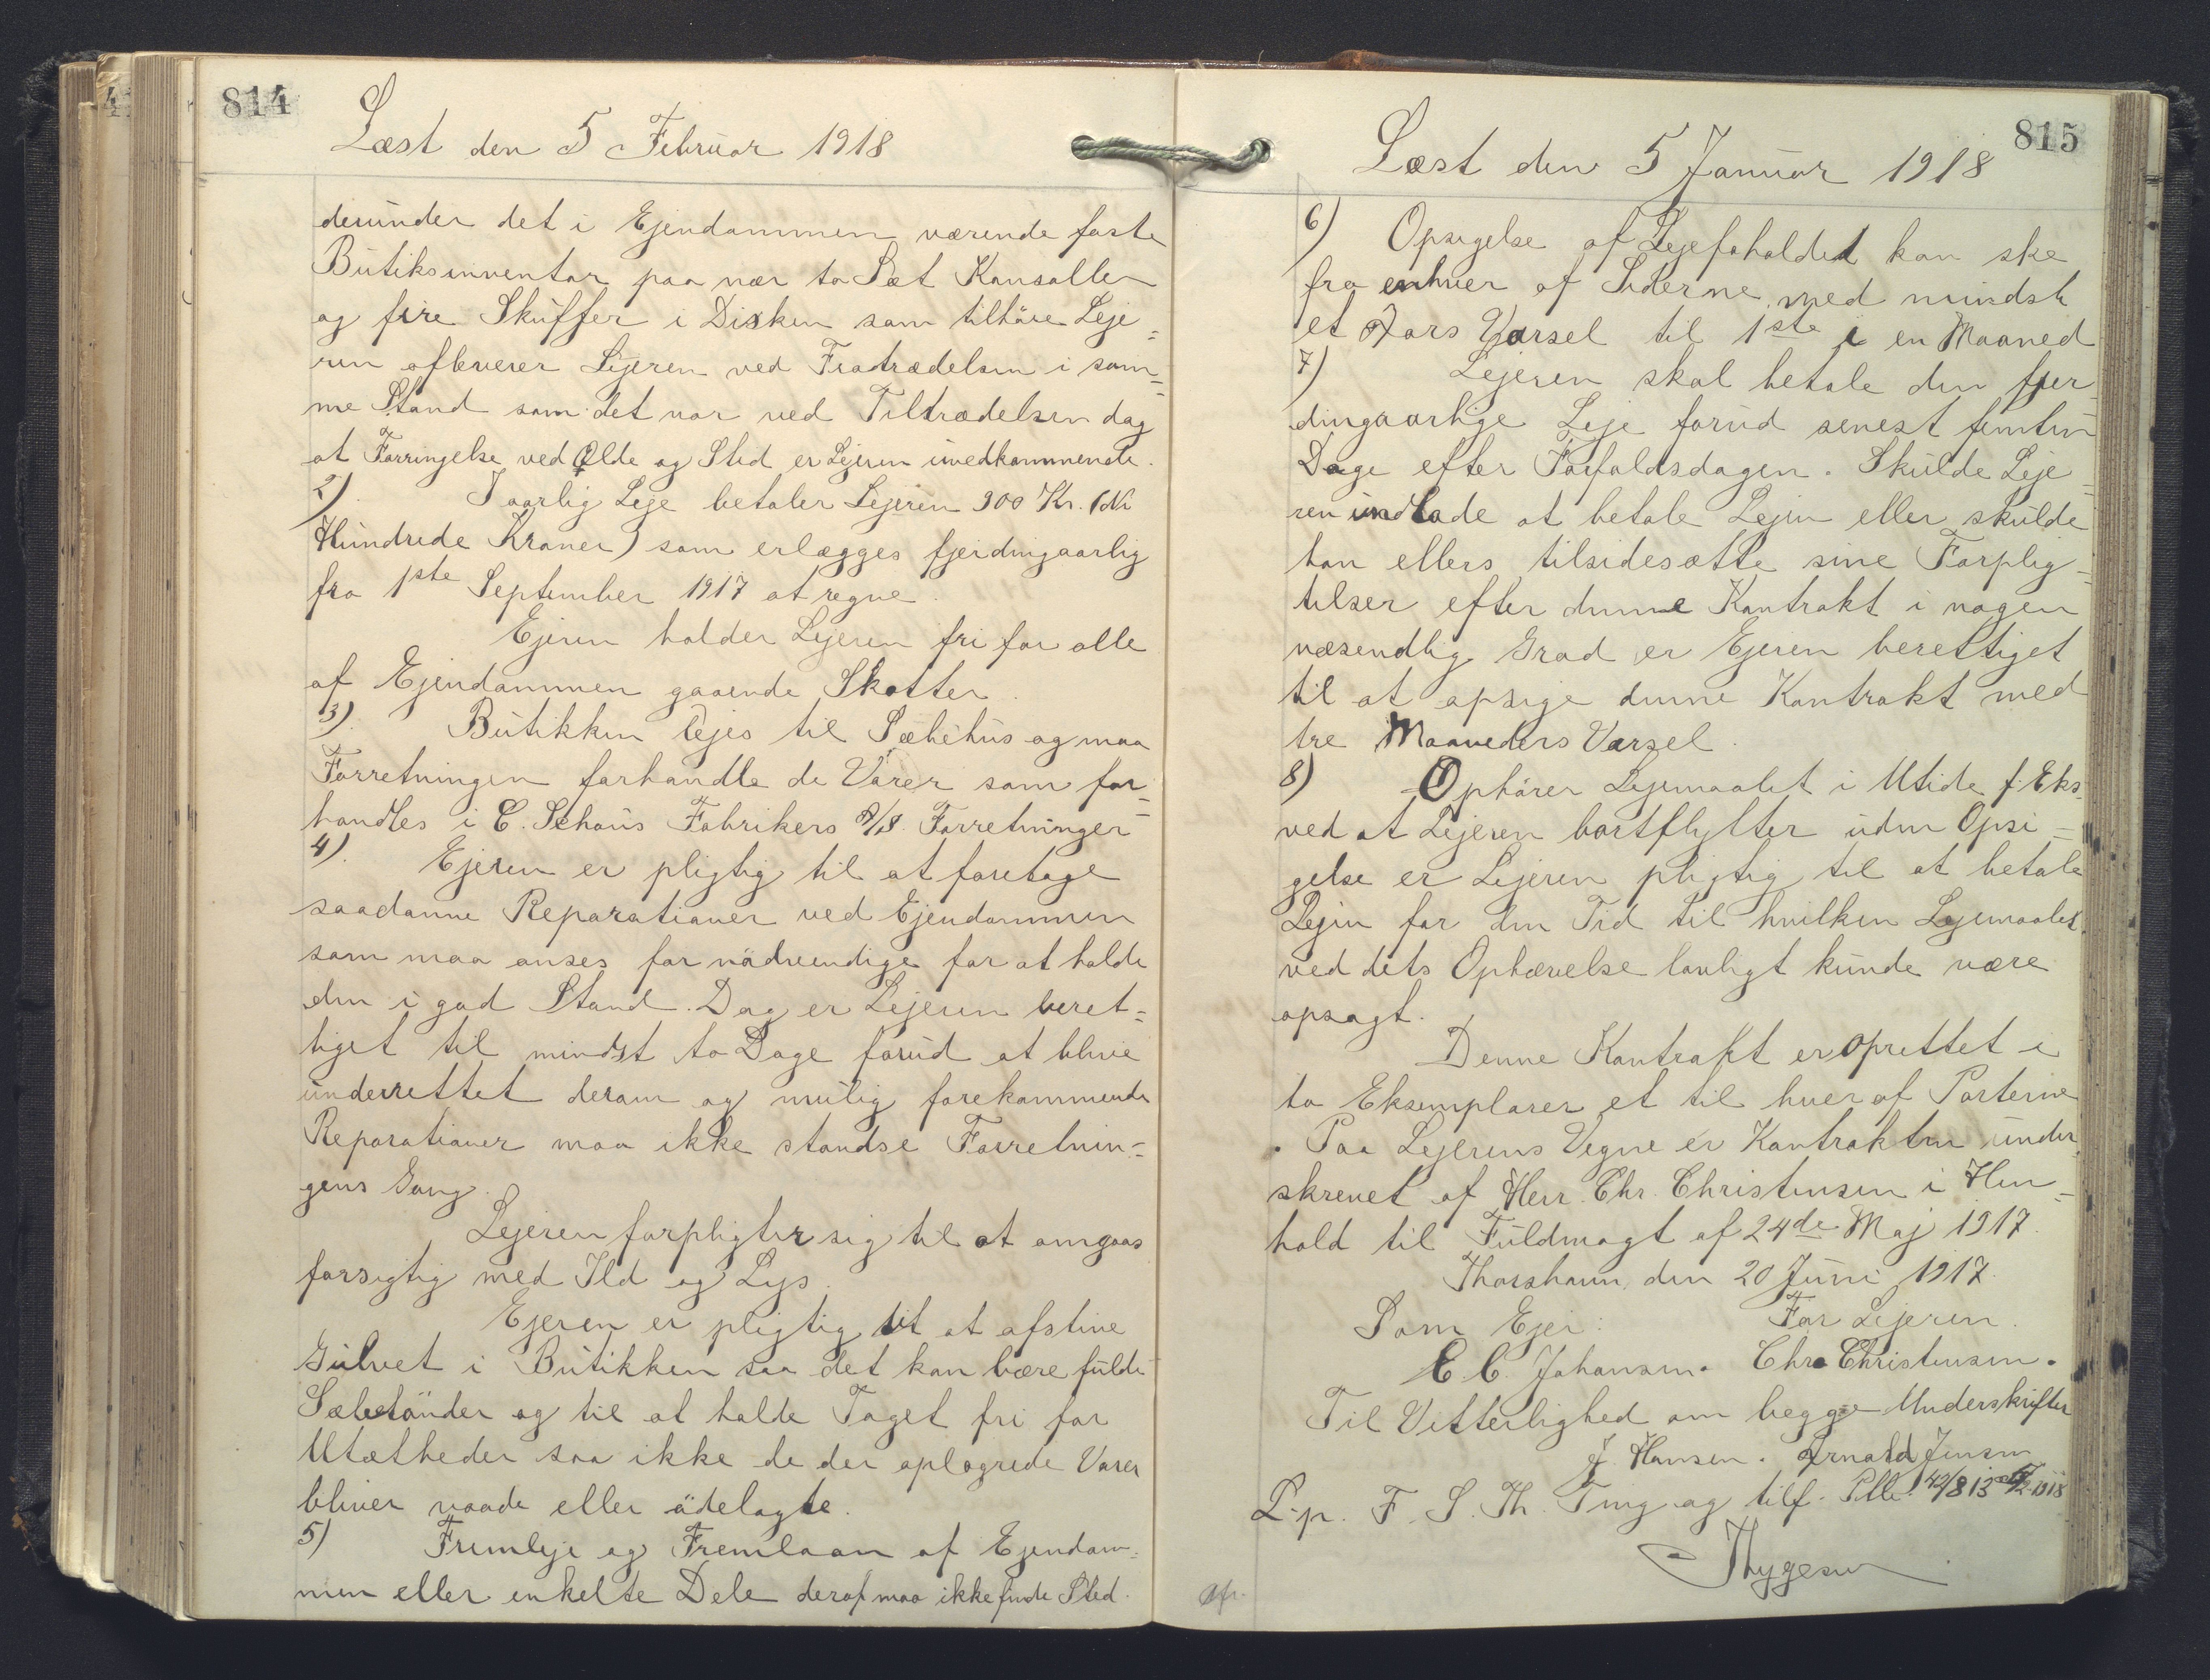 814
Læst den 5 Februar 1918
derunder det i Ejendommen værende faste
Butiksinventar paa nær to Sæt Konsoller
og fire Skuffer i Disken som tilhöre Leje=
ren afleverer Lejeren ved Fratrædelsen i sam=
me Stand som det var ved Tiltrædelsen dog
at Forringelse ved Ælde og Slid er Lejeren uvedkommende.
2). I aarlig Leje betaler Lejeren 900 Kr. (Ni
Hundrede Kroner) som erlægges fjerdingaarlig
fra 1ste September 1917 at regne.
Ejeren holder Lejeren fri for alle
af Ejendommen gaaende Skatter.
3). Butikken lejes til Sæbehus og maa
Forretningen forhandle de Varer som for=
handles i C. Schous Fabrikers A/S. Forretninger
4). Ejeren er pligtig til at foretage
saadanne Reparationer ved Ejendommen
som maa anses for nödvendige for at holde
den i god Stand. Dog er Lejeren beret=
tiget til mindst to Dage forud at blive
underrettet derom og mulig forekommende
Reparationer maa ikke standse Forretnin=
gens Gang.
Lejeren forpligter sig til at omgaas
forsigtig med Ild og Lys.
Ejeren er pligtig til at afstive
Gulvet i Butikken saa det kan bære fulde
Sæbetönder og til at holde Taget fri for
Utætheder saa ikke de der oplagrede Varer
bliver vaade eller ödelagte.
5) Fremleje og Fremlaan af Ejendom=
men eller enkelte Dele deraf maa ikke finde Sted.
815
Læst den 5 Januar 1918
6) Opsigelse af Lejefoholdet kan ske
fra enhver af Siderne med mindst
et Aars Varsel til 1ste i en Maaned
7) Lejeren skal betale den fjer
dingaarlige Leje forud senest femten
Dage efter Forfaldsdagen. Skulde Leje=
ren undlade at betale Lejen eller skulde
han ellers tilsidesætte sine Forplig=
telser efter denne Kontrakt i nogen
væsendlig Grad er Ejeren berettiget
til at opsige denne Kontrakt med
tre Maaneders Varsel.
8) Ophörer Lejemaalet i Utide f. Eks.
ved at Lejeren bortflytter uden Opsi=
gelse er Lejeren pligtig til at betale
Lejen for den Tid til hvilken Lejemaalet
ved dets Ophævelse lovligt kunde være
opsagt.
Denne Kontrakt er oprettet i
to Eksemplarer et til hver af Parterne
. Paa Lejerens Vegne er Kontrakten under
skrevet af Herr. Chr. Christensen i Hen=
hold til Fuldmagt af 24de Maj 1917.
Thorshavn, den 20 Juni 1917.
Som Ejer: For Lejeren.
E C. Johansen. Chr. Christensen.
Til Vitterlighed om begge Underskrifter
J. Hansen. Arnold Jensen
L. p. F. S. Th. Ting og tilf. Pllr. 42/813 5/2 1918
Thygesen
Afr.